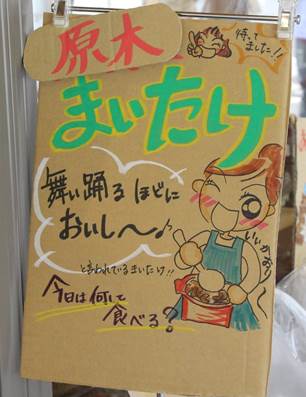 原木
待ってました!!
まいたけ
舞い踊るほどに
おいし〜♪
と言われているまいたけ!!
いいかおり〜
今日は何して
食べる？